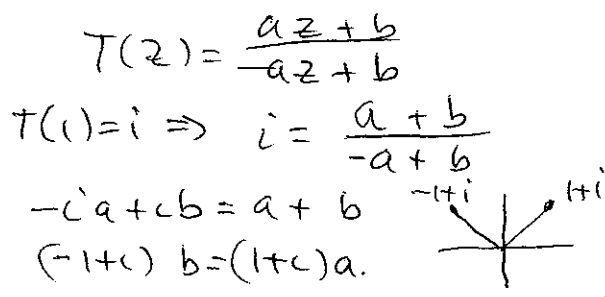 T(z) = \frac{az + b}{-az + b}
T(i) = i ⇒ i = \frac{a + b}{-a + b}
-ia + ib = a + b
(-1+i) b = (1+i)a.
-1+i
1+i